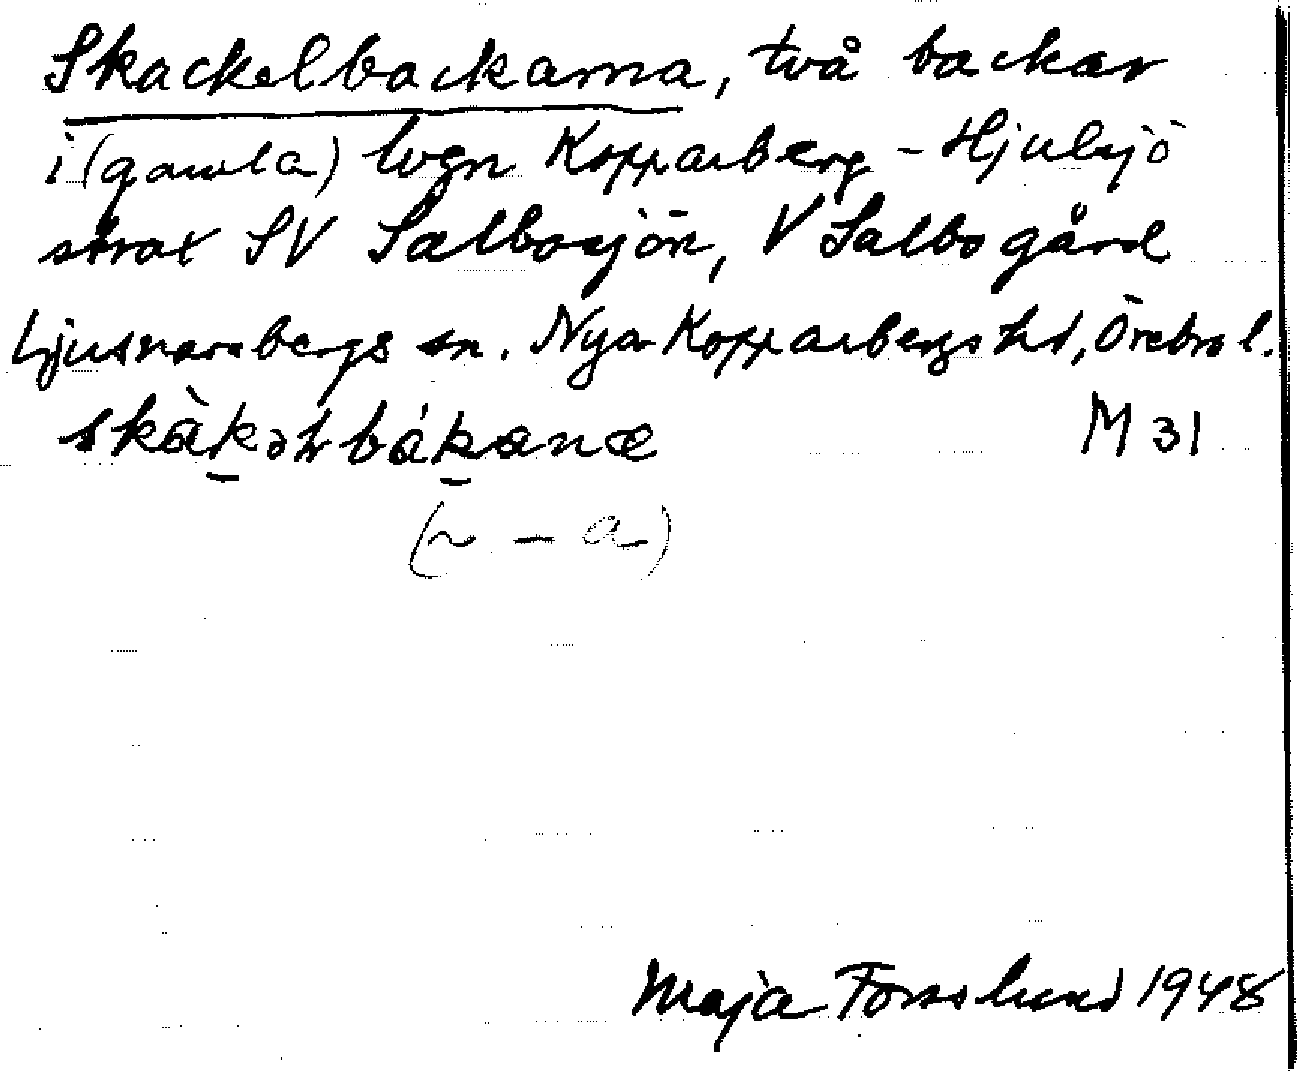 Skackelbackarna, två backar
i (gamla) lvgn Kopparberg - Hjulsjö
strax SV Salbosjön, V Salbo gård
Ljusnarsbergs sn. Nya Kopparbergs hd, Örebro l.
skàk̲əɫbák̲anæ M 31
(~ - a)
Maja Forsslund 1948